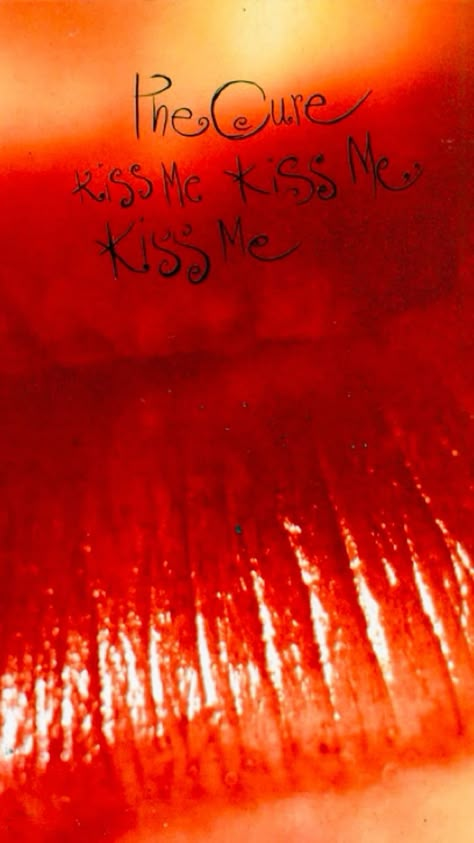 The Cure
Kiss Me Kiss Me
Kiss Me